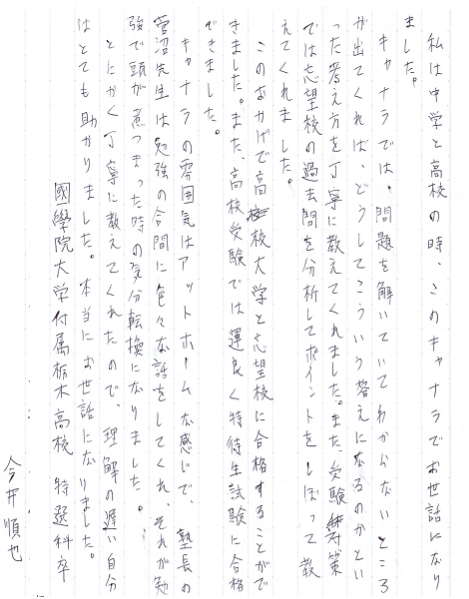 私は中学と高校の時、このキャナラでお世話になり
ました。
キャナラでは、問題を解いていてわからないところ
が出てくれば、どうしてこういう答えになるのかとい
った考え方を丁寧に教えてくれました。また、受験対策
では志望校の過去問を分析してポイントをしぼって教
えてくれました。
このおかげで高校大学と志望校に合格することがで
きました。また、高校受験では運良く特待生試験に合格
できました。
キャナラの雰囲気はアットホームな感じで、塾長の
菅沼先生は勉強の合間に色々な話をしてくれ、それが勉
強で頭が煮つまった時の気分転換になりました。
とにかく丁寧に教えてくれたので、理解の遅い自分
はとても助かりました。本当にお世話になりました。
國學院大学付属栃木高校 特選科卒
今井順也